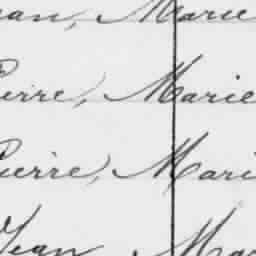 ean, Marie
ierre, Marie
Pierre, Mari
Jean Mar